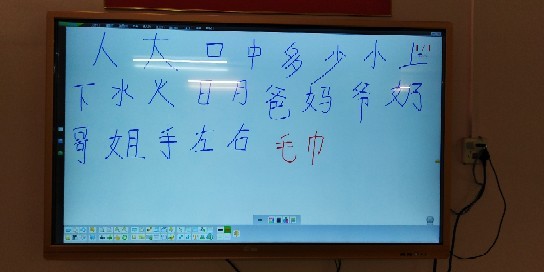 人大口中多少小上
下水火日月爸妈爷奶
哥姐手左右毛巾